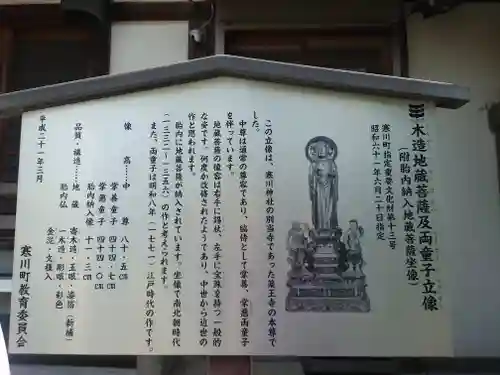 木造地蔵菩薩及両童子立像
（附胎内納入地蔵菩薩坐像）
寒川町指定重要文化財第十三号
昭和六十一年六月二十日指定
この立像は、寒川神社の別当寺であった薬王寺の本尊で
した。
中尊は通常の尊容であり、脇侍として掌善、掌悪両童子
を伴っています。
地蔵菩薩の尊像は右手に錫杖、左手に宝珠を持つ一般的
な姿です。何度か改修されたようであり、中世から近世の
作と思われます。
胎内に地蔵菩薩が納入されています。坐像で南北朝時代
（一三三二―一三五六）の作と考えられます。
また、両童子は明和八年（一七七一）江戸時代の作です。
像高…中尊　八十・五㎝
掌善童子　四十四・七㎝
掌悪童子　四十四・〇㎝
胎内納入像　十一・三㎝
品質・構造……地蔵　寄木造・玉眼・漆箔（新補）
一木造・彫眼・彩色
胎内仏　金泥・文様入
平成二十一年三月
寒川町教育委員会